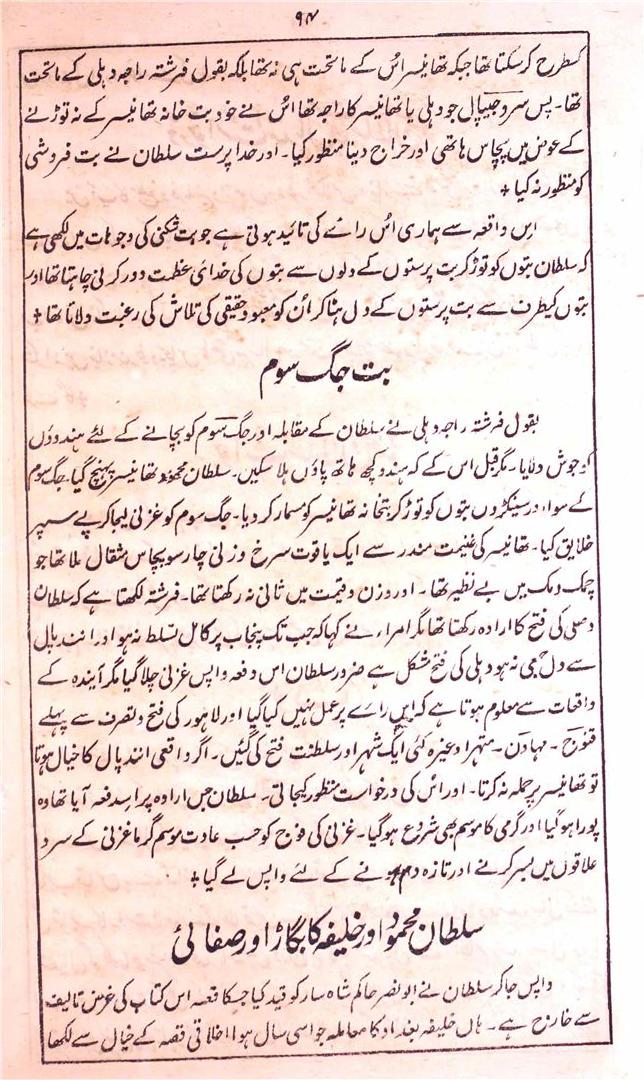 ۹۴
کسطرح کر سکتا تھا جبکہ تھانیسر اس کے ماتحت ہی نہ تھا بلکہ بقول فرشتہ راجہ دہلی کے ماتحت
تھا۔ پس سروجیپال جو دہلی یا تھانیسر کا راجہ تھا اُس نے خود بت خانہ تھانیسر کے نہ توڑنے
کے عوض میں پچاس ہاتھی اور خراج دینا منظور کیا۔ اور خدا پرست سلطان نے بت فروشی
کو منظور نہ کیا +
اِس واقعہ سے ہماری اُس رائے کی تائید ہوتی ہے جو بت شکنی کی وجوہات میں لکھی ہے
کہ سلطان بتوں کو توڑ کر بت پرستوں کے دلوں سے بتوں کی خدائی عظمت دور کرنی چاہتا تھا اور
بتوں کیطرف سے بت پرستوں کے دل ہٹا کر اُن کو معبود حقیقی کی تلاش کی رغبت دلاتا تھا +
بت جگ سوم
بقول فرشتہ راجہ دہلی نے سلطان کے مقابلہ اور جگ سوم کو بچانے کے لئے ہندوؤں
کو جوش دلایا۔ مگر قبل اس کے کہ ہندو کچھ ہاتھ پاؤں ہلا سکیں۔ سلطان محمود تھانیسر پہنچ گیا۔ جگ سوم
کے سوا، اور سینکڑوں بتوں کو توڑ کر بتخانہ تھانیسر کو مسمار کر دیا۔ جگ سوم کو غزنی لیجا کر پے سپر
خلایق کیا۔ تھانیسر کی غنیمت مندر سے ایک یاقوت سرخ وزنی چار سو پچاس مثقال ملا تھا جو
چمک دمک میں بے نظیر تھا۔ اور وزن و قیمت میں ثانی نہ رکھتا تھا۔ فرشتہ لکھتا ہے کہ سلطان
دہلی کی فتح کا ارادہ رکھتا تھا مگر امراء نے کہا کہ جب تک پنجاب پر کامل تسلط نہ ہو اور انند پال
سے دل جمی نہ ہو دہلی کی فتح مشکل ہے ضرور سلطان اس دفعہ واپس غزنی چلا گیا مگر آیندہ کے
واقعات سے معلوم ہوتا ہے کہ اِس رائے پر عمل نہیں کیا گیا اور لاہور کی فتح و تصرف سے پہلے
قنوج۔ مہادن۔ متہرا وغیرہ کئی ایک شہر اور سلطنت فتح کی گئیں۔ اگر واقعی انند پال کا خیال ہوتا
تو تھانیسر پر حملہ نہ کرتا۔ اور اُس کی درخواست منظور کیجاتی۔ سلطان جس ارادہ پر اِسدفعہ آیا تھا وہ
پورا ہو گیا اور گرمی کا موسم بھی شروع ہو گیا۔ غزنی کی فوج کو حسب عادت موسم گرما غزنی کے سرد
علاقوں میں بسر کرنے اور تازہ دم ہونے کے لئے واپس لے گیا +
سلطان محمود اور خلیفہ کا بگاڑ اور صفائی
واپس جا کر سلطان نے ابو نصر حاکم شاہ سار کو قید کیا جسکا قصہ اس کتاب کی غرض تالیف
سے خارج ہے۔ ہاں خلیفہ بغداد کا معاملہ جو اسی سال ہوا اخلاقی قصہ کے خیال سے لکھا